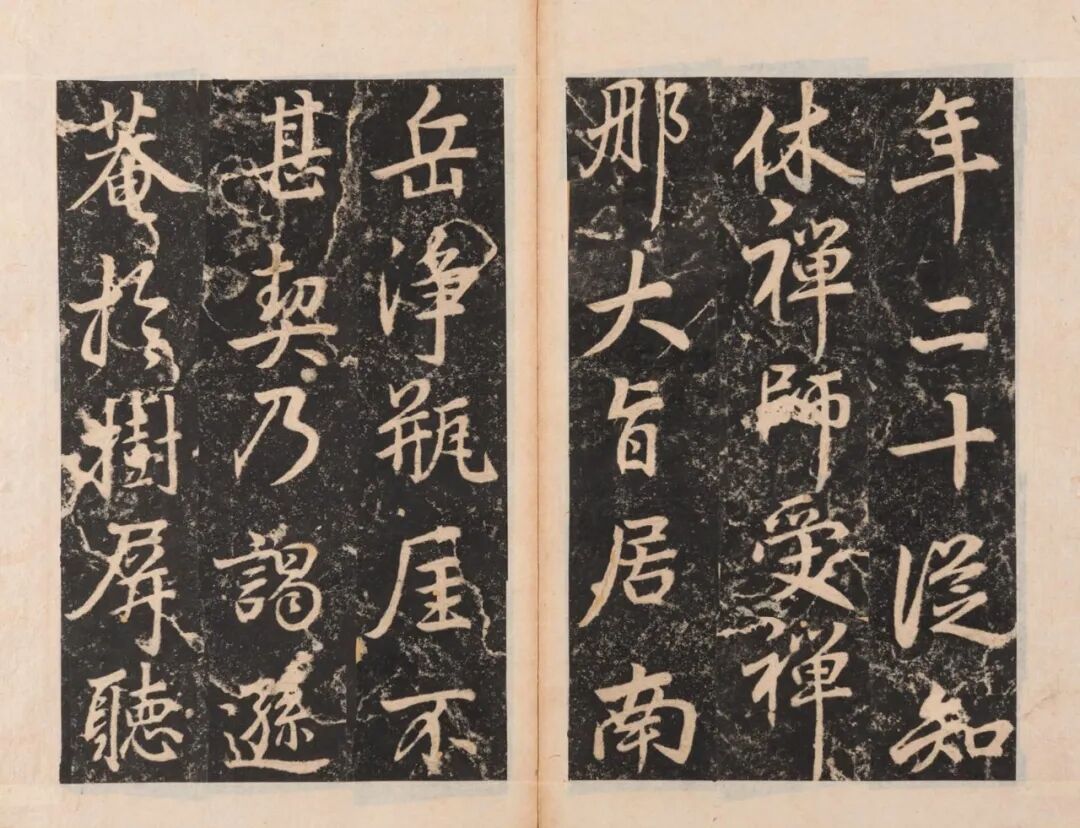 年二十從知
休禪師受禪
那大旨居南
岳淨瓶厓不
甚契乃謁遜
菴於樹屏聽